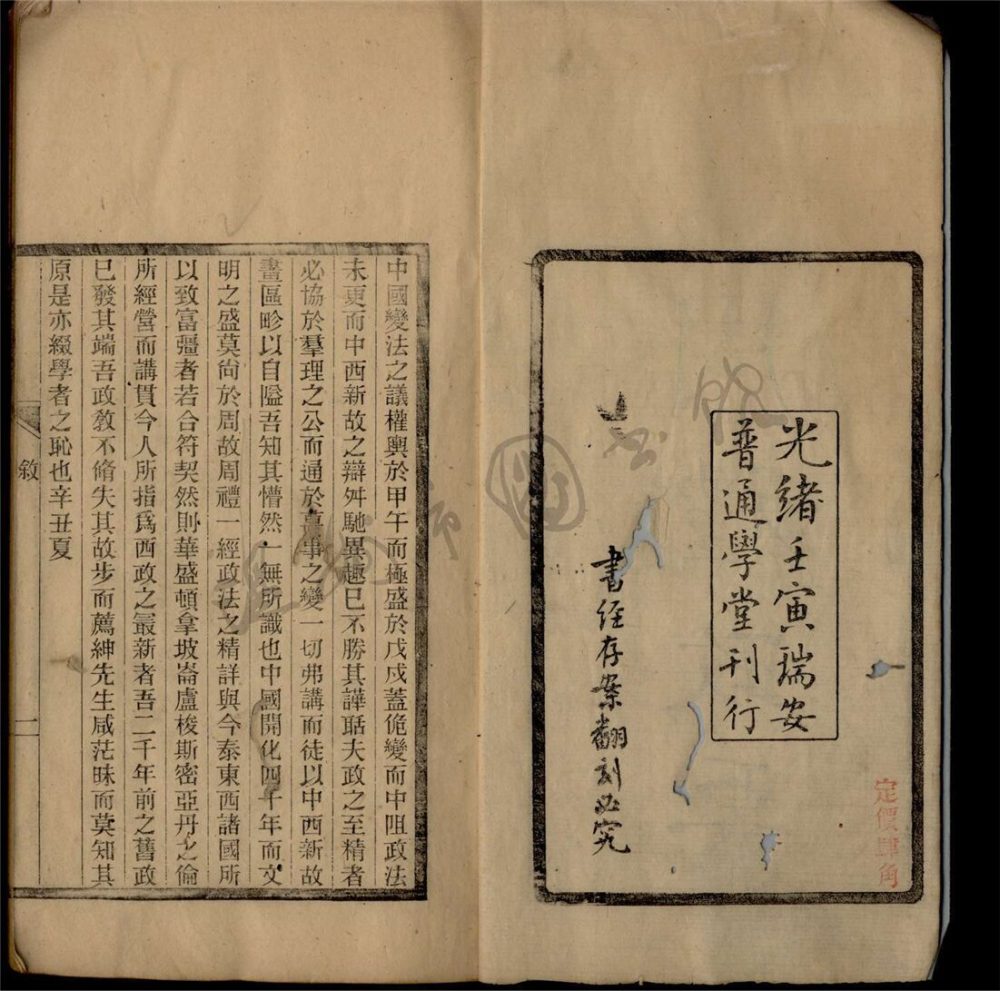 光緒壬寅瑞安
普通學堂刊行
書經存案翻刻必究
定價肆角
中國變法之議權輿於甲午而極盛於戊戌蓋佹變而中阻政法
未更而中西新故之辯舛馳異趣已不勝其譁聒夫政之至精者
必協於羣理之公而通於萬事之變一切弗講而徒以中西新故
畫區畛以自隘吾知其懵然一無所識也中國開化四千年而文
明之盛莫尙於周故周禮一經政法之精詳與今泰東西諸國所
以致富彊者若合符契然則華盛頓拿坡崙盧梭斯密亞丹之倫
所經營而講貫今人所指爲西政之最新者吾二千年前之舊政
已發其端吾政敎不脩失其故步而薦紳先生咸茫昧而莫知其
原是亦綴學者之恥也辛丑夏
敘
一